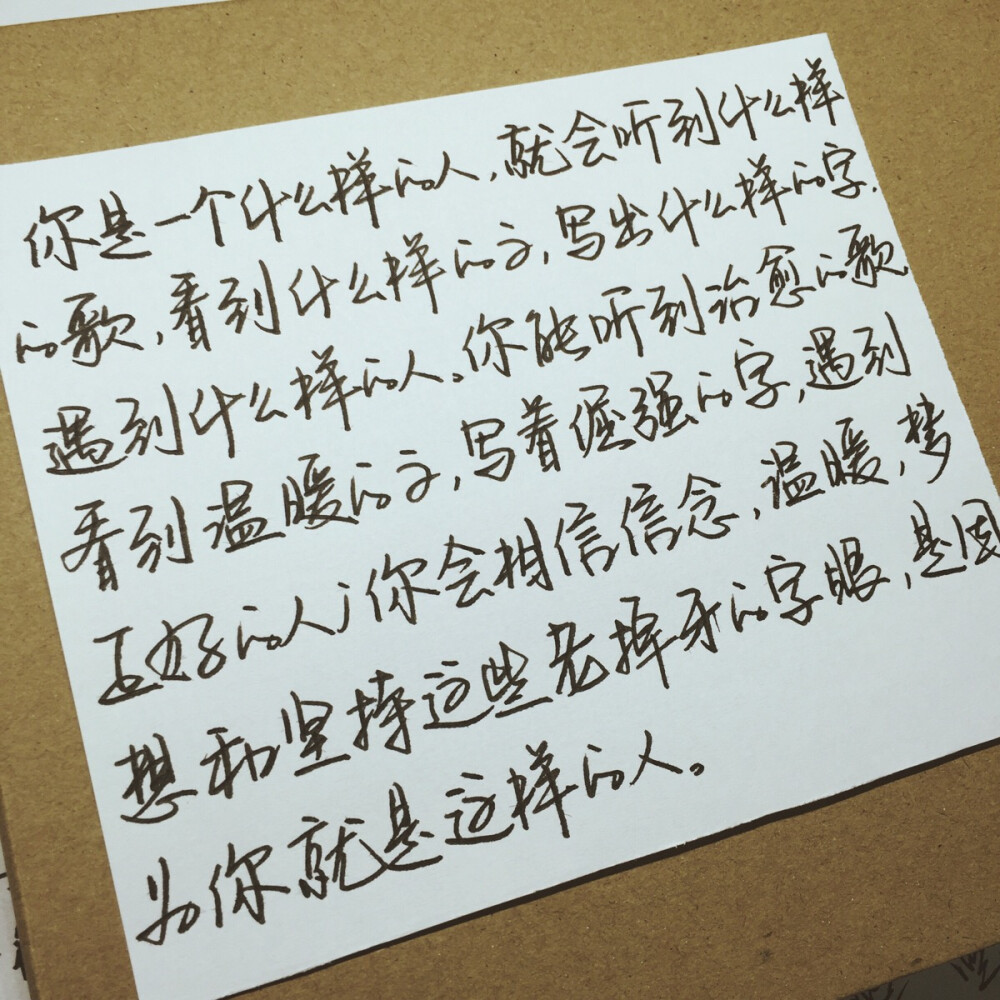 你是一个什么样的人,就会听到什么样
的歌,看到什么样的文,写出什么样的字.
遇到什么样的人。你能听到治愈的歌
看到温暖的文,写着倔强的字,遇到
正好的人;你会相信信念,温暖,梦
想和坚持这些老掉牙的字眼,是因
为你就是这样的人。